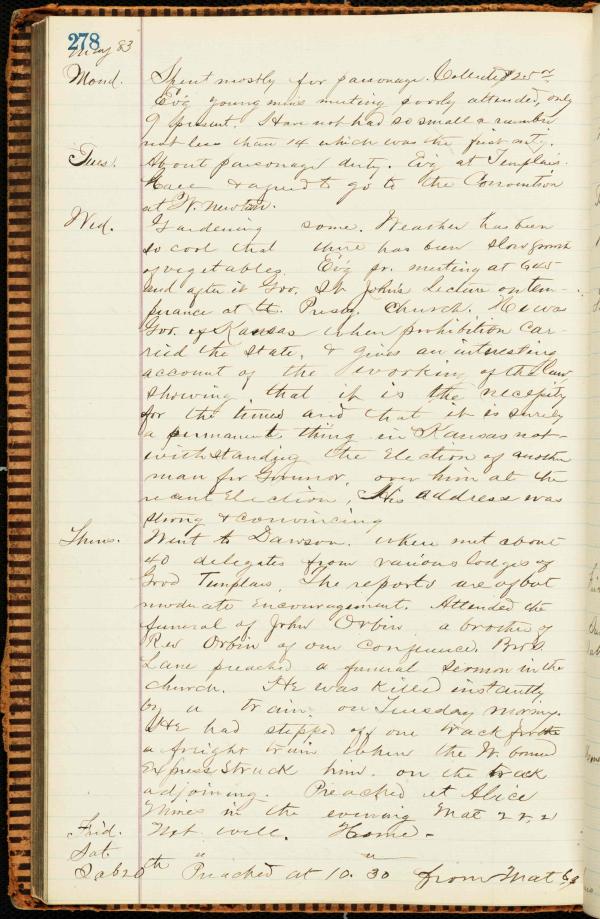 278
May 83
Mond. Spent mostly for parsonage. Collected $25 00
Ev'g young mens meeting poorly attended, only
9 present. Have not had so small a number
not less than 14 which was the first mt'g.
Tues. About parsonage duty. Ev'g at Templars.
& agreed to go to the Convention
at W. Newton.
Wed. Gardening some. Weather has been
so cool that there has been slow growth
of vegetables. Ev'g pr. meeting at 6.45
and after it Gov. St. John's Lecture on tem-
perance at Presby. Church. He was
Gov. of Kansas when prohibition car-
ried the state, & gives an interesting
account of the working of the law,
showing that it is the necessity
for the times and that it is surely
a permanent thing in Kansas not-
withstanding the Election of another
man for Governor, over him at the
recent Election, His address was
strong & convincing
Thurs. Went to Dawson. when met about
40 delegates from various lodges of
Good Templars, The reports are of but
moderate Encouragement. Attended the
funeral of John Orbin a brother of
Rev Orbin of our Conference. Bro.
Lane preached a funeral sermon in the
church. He was killed instantly
by a train on Tuesday morning.
He had stepped off one track for
a freight train when the W. bound
Express struck him. on the track
adjoining. Preached at Alice
Mines in the evening Mat 22,2
Frid. Not well. Home -
Sat. " "
Sab 20th Preached at 10.30 from Mat 6,